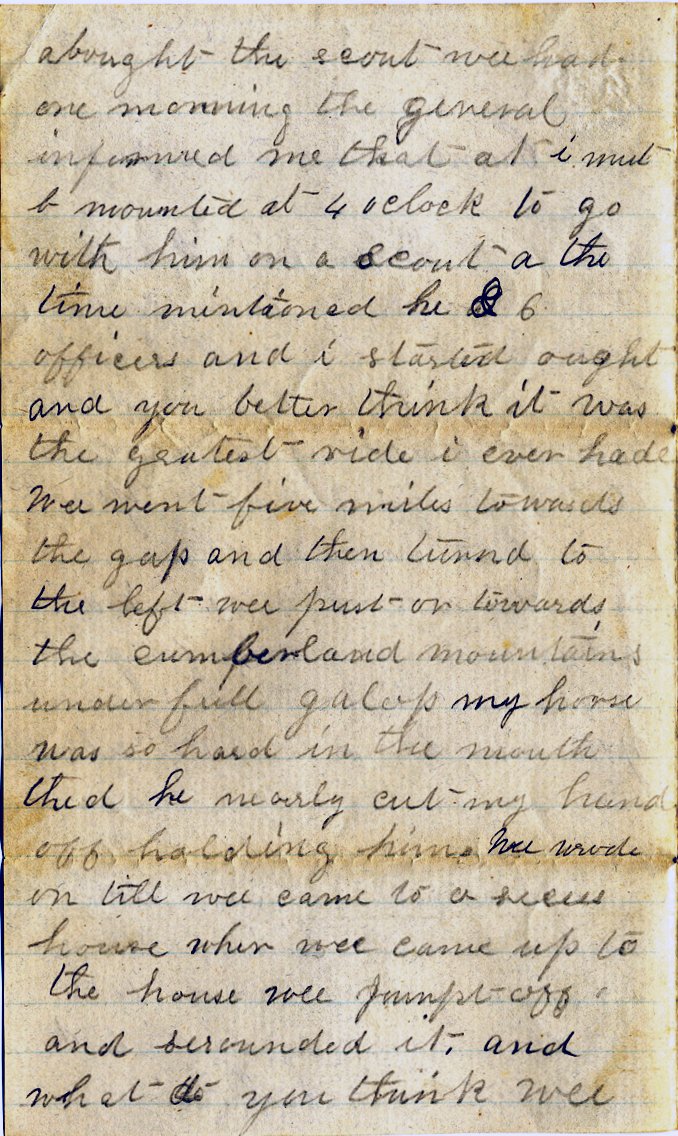 abought the scout wee had
one morning the general
informred me that at i must
b mounted at 4 oclock to go
with him on a scout a the
time mintioned he & 6
officers and i started ought
and you better think it was
the gratest ride i ever hade
Wee went five miles towards
the gap and then turnd to
the left wee pust on towards
the cumberland mountains
under full galop my horse
was so hard in the mouth
thed he nearly cut my hand
off holding him. Wee wrode
on till wee came to a secess
house wher wee came up to
the house wee jumpt off
and serounded it. and
what do you think wee